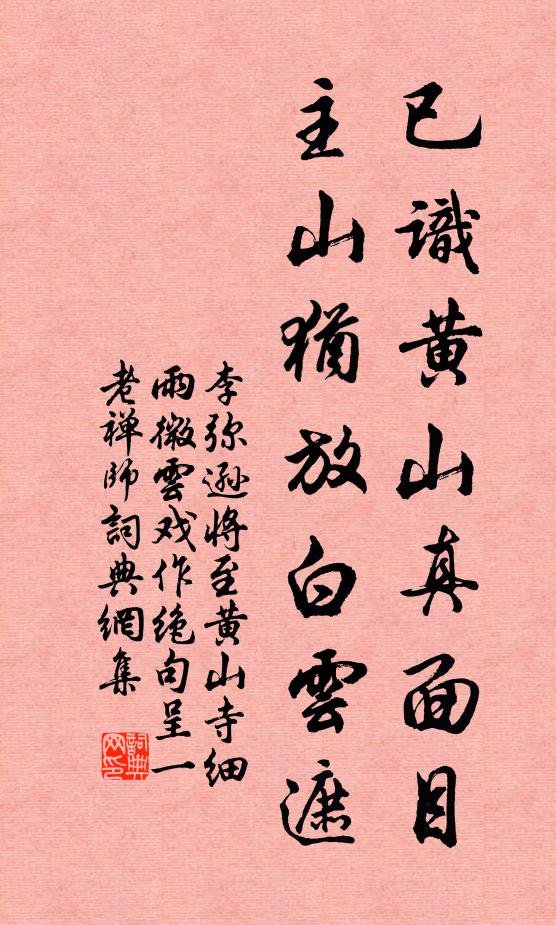 已識黄山真面目
主山猶放白雲遮
李弥遜将至黄山寺细
雨微雲戏作绝句呈一
老禅師詞典網集
詞典
网印